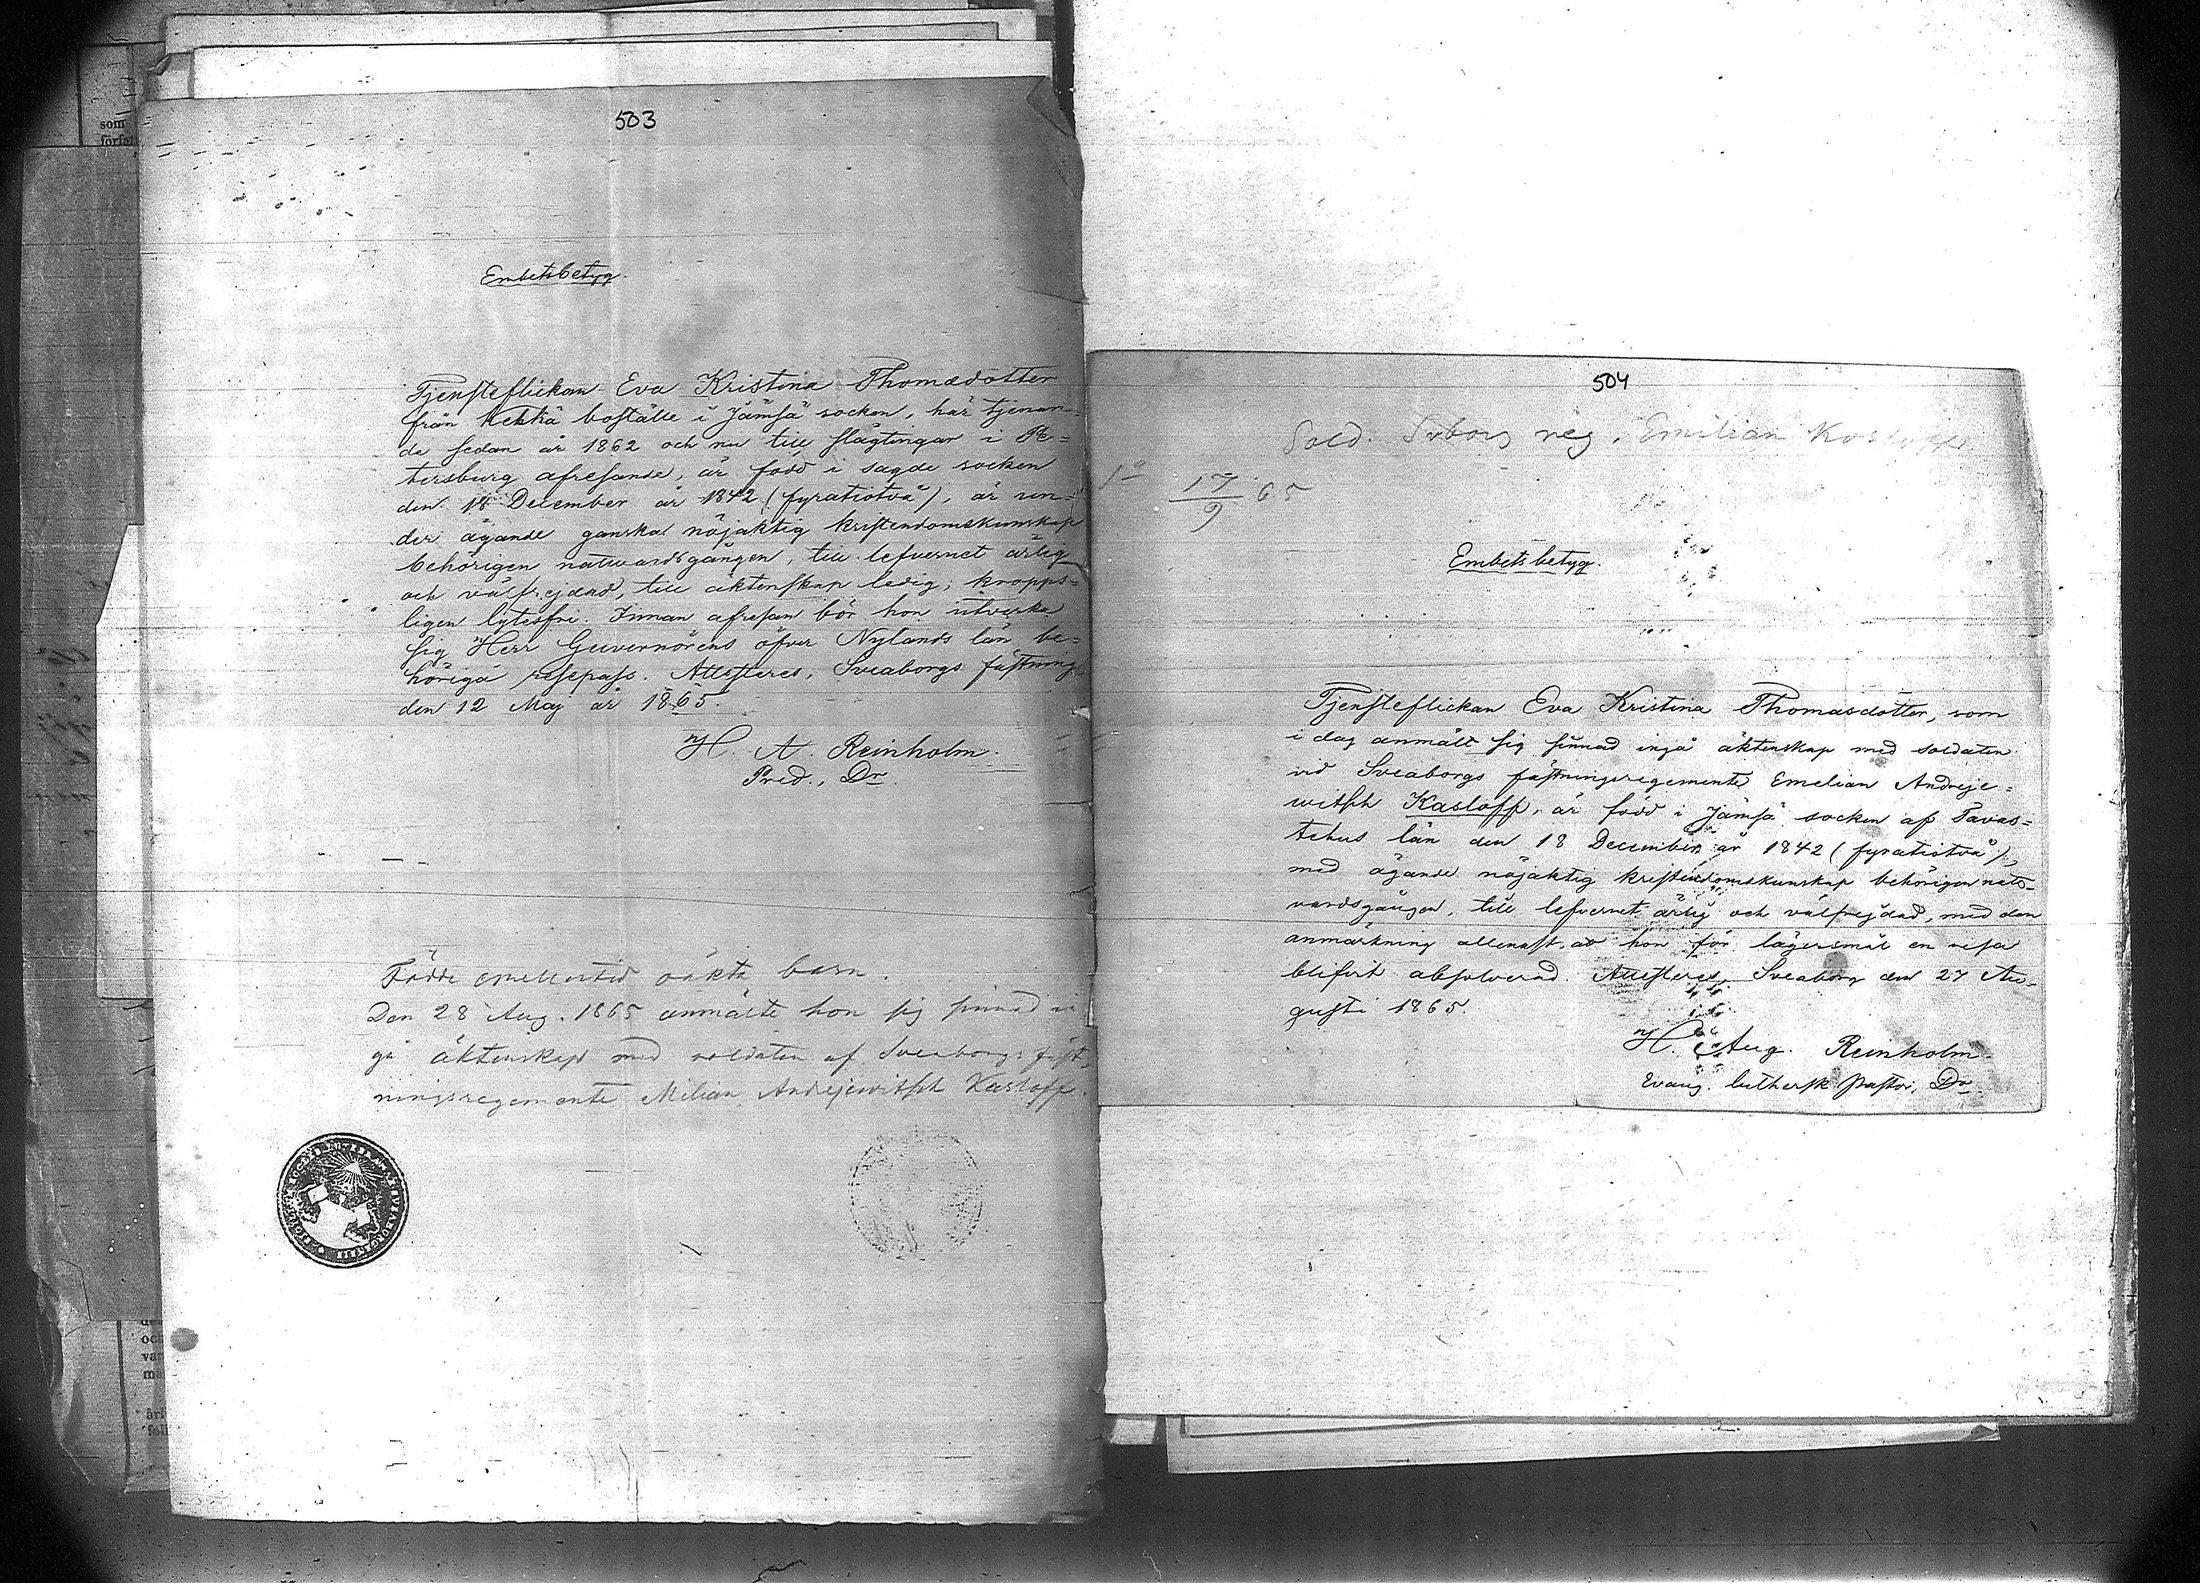 503
Embetsbetyg.
Tjensteflickan Eva Kristina Thomasdotter
från Kekkä boställe i Jämsä socken, här tjenan-
de sedan år 1862 och nu till slägtingar i Pe-
tersburg afresande, är född i sagde socken
den 18 December år 1842 (fyratiotvå), är un-
der ägande ganska nöjaktig kristendomskunskap
behörigen nattvardsgången, till lefvernet ärlig
och välfrejdad, till äktenskap ledig, kropps-
ligen lytesfri. Innan afresan bör hon utverka
sig Herr Guvernörens öfver Nylands län be-
höriga respass. Attesteres, Sveaborgs fästning
den 12 Maj år 1865.
H. A. Reinholm.
Pred., Dr.
Födde emellertid oäkta barn.
Den 28 Aug. 1865 anmälte hon sig sinnad in
gå äktenskap med soldaten af Sveaborgs fäst
ningsregemente Milian Andrejewitsch Kasloff.
504
Sold. Svborg reg. Emilian Kosloff
1a 17/9 65
Embetsbetyg.
Tjensteflickan Eva Kristina Thomasdotter, som
i dag anmält sig sinnad ingå äktenskap med soldaten
vid Sveaborgs fästningsregemente Emelian Andreje-
witsch Kasloff, är född i Jämsä socken af Tavas-
tehus län den 18 December år 1842 (fyratiotvå),
med ägande nöjaktig kristendomskunskap behörigen natt-
vardsgången, till lefvernet ärlig och välfrejdad, med den
anmärkning allenast, att hon för lägersmål en resa
blifvit absolverad. Attesteres, Sveaborg den 27 Au-
gusti 1865.
H. Aug. Reinholm.
Evang. luthersk pastor, Dr.